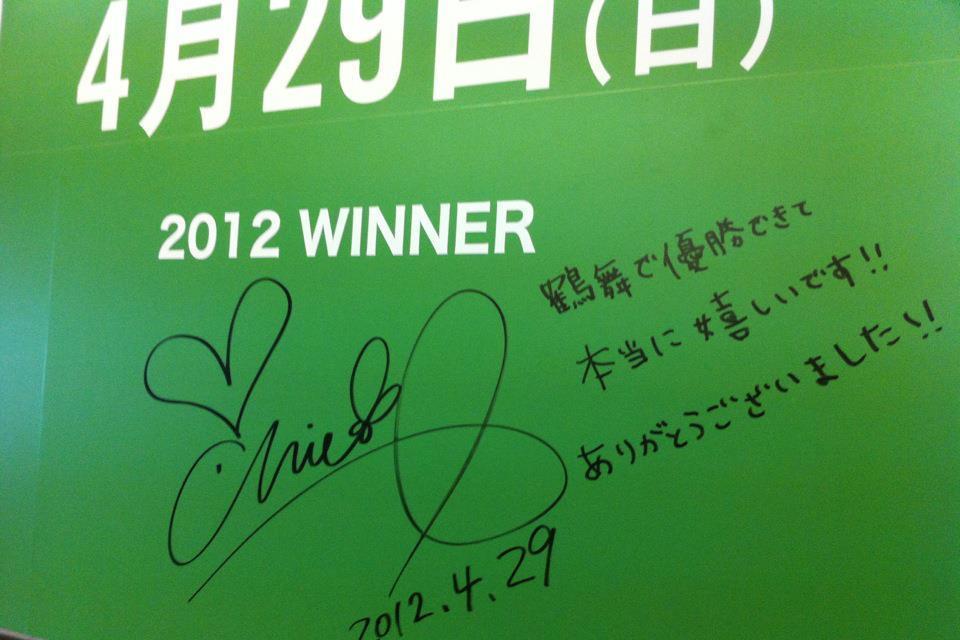 4月29日(日)
2012 WINNER
鶴舞で優勝できて
本当に嬉しいです!!
ありがとうございました!!
2012.4.29